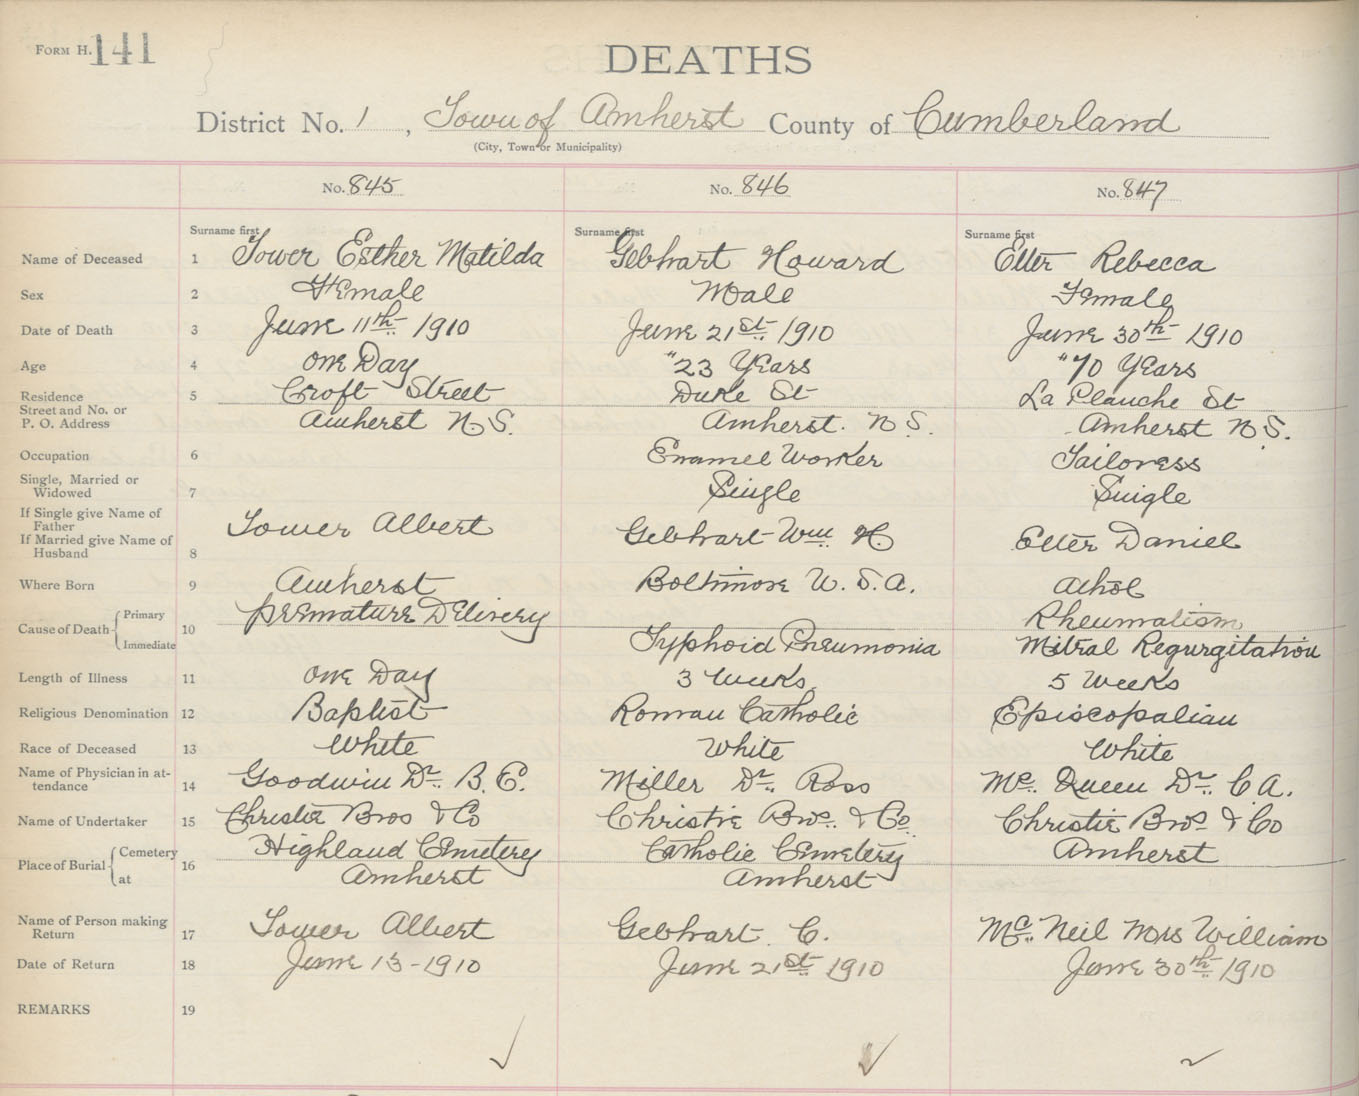 FORM H. 141
DEATHS
District No. 1, Town of Amherst County of Cumberland
(City, Town or Municipality)
No. 845 No. 846 No. 847
Surname first Surname first Surname first
Name of Deceased 1 Tower Esther Matilda Gebhart Howard Etter Rebecca
Sex 2 Female Male Female
Date of Death 3 June 11th 1910 June 21st 1910 June 30th 1910
Age 4 One Day "23 Years "70 Years
Residence 5 Croft Street Duke St La Planche St
Street and No. or
P. O. Address Amherst N.S. Amherst. N S. Amherst N.S.
Occupation 6 Enamel Worker Tailoress
Single, Married or
Widowed 7 Single Single
If Single give Name of
Father Tower Albert Gebhart Wm H Etter Daniel
If Married give Name of
Husband 8
Where Born 9 Amherst Boltimore U.S.A. Athol
Cause of Death 10
Primary Premature Delivery Rheumatism
Immediate Typhoid Pneumonia Mitral Regurgitation
Length of Illness 11 One Day 3 Weeks 5 Weeks
Religious Denomination 12 Baptist Roman Catholic Episcopalian
Race of Deceased 13 White White White
Name of Physician in at-
tendance 14 Goodwin Dr. B. E. Miller Dr. Ross Mc. Queen Dr. C A.
Name of Undertaker 15 Christie Bros & Co Christie Bros. & Co. Christie Bros & Co
Place of Burial 16
Cemetery Highland Cemetery Catholic Cemetery Amherst
at Amherst Amherst
Name of Person making
Return 17 Tower Albert Gebhart. C. Mc. Neil Mrs William
Date of Return 18 June 13-1910 June 21st 1910 June 30th 1910
REMARKS 19